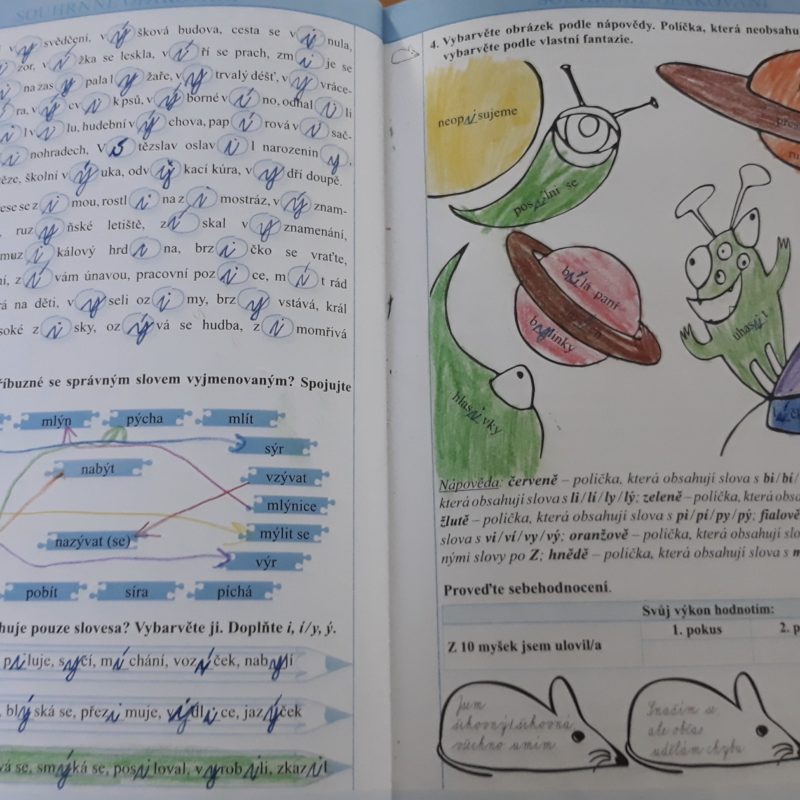 svědčení, v ý šková budova, cesta se v i nula,
zor, v í žka se leskla, v í ří se prach, zm i je se
na zas y pala l y žaře, v y trvalý déšť, v y vráce-
ra, v y cv i k psů, v ý borné v í no, odhal i li
l v i lu, hudební v ý chova, pap í rová v i sač-
nohradech, V í tězslav oslav i l narozenin y,
ěze, školní v ý uka, odv y kací kúra, v y dří doupě.
ese se z i mou, rostl i na z i mostráz, v ý znam-
ruz y ňské letiště, z í skal v y znamenání,
muz i kálový hrd i na, brz i čko se vraťte,
ní, z í vám únavou, pracovní poz i ce, m í t rád
rá na děti, v y seli oz i my, brz y vstává, král
soké z i sky, oz ý vá se hudba, z i momřivá
říbuzné se správným slovem vyjmenovaným? Spojujte
mlýn pýcha mlít
sýr
nabýt
vzývat
mlýnice
nazývat (se)
mýlit se
výr
pobít síra píchá
huje pouze slovesa? Vybarvěte ji. Doplňte i, í/y, ý.
p i luje, s y čí, m í chání, voz í ček, nab y jí
, bl ý ská se, přez i muje, v i dl i ce, jaz ý ček
vá se, sm ý ká se, pos i loval, v y rob i li, zkaz i l
4. Vybarvěte obrázek podle nápovědy. Políčka, která neobsahu
vybarvěte podle vlastní fantazie.
neop i sujeme
pos i lni se
b í lá paní
b y linky
hlas i vky
úhas i l
Nápověda: červeně – políčka, která obsahují slova s bi/bí/
která obsahují slova s li/lí/ly/lý; zeleně – políčka, která obsa
žlutě – políčka, která obsahují slova s pi/pí/py/pý; fialově
slova s vi/ví/vy/vý; oranžově – políčka, která obsahují slo
nými slovy po Z; hnědě – políčka, která obsahují slova s m
Proveďte sebehodnocení.
Svůj výkon hodnotím:
1. pokus 2. p
Z 10 myšek jsem ulovil/a
Jsem
šikovný/šikovná
všechno umím
Snažím se
ale občas
udělám chybu